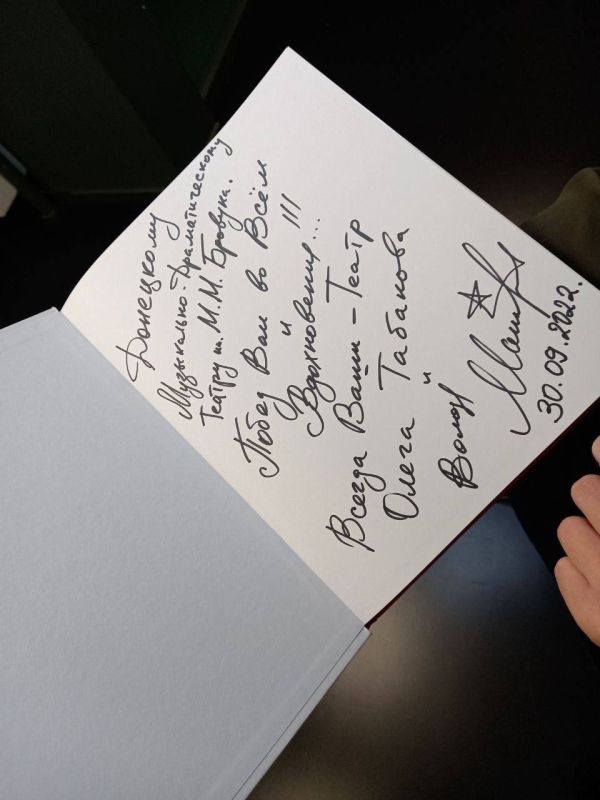 Донецкому
Музыкально-Драматическому
Театру им. М.М. Бровуна.
Побед Вам во Всём
и
Вдохновения!!!...
Всегда Ваши - Театр
Олега Табакова
и
Волод Машков
30.09.2022.